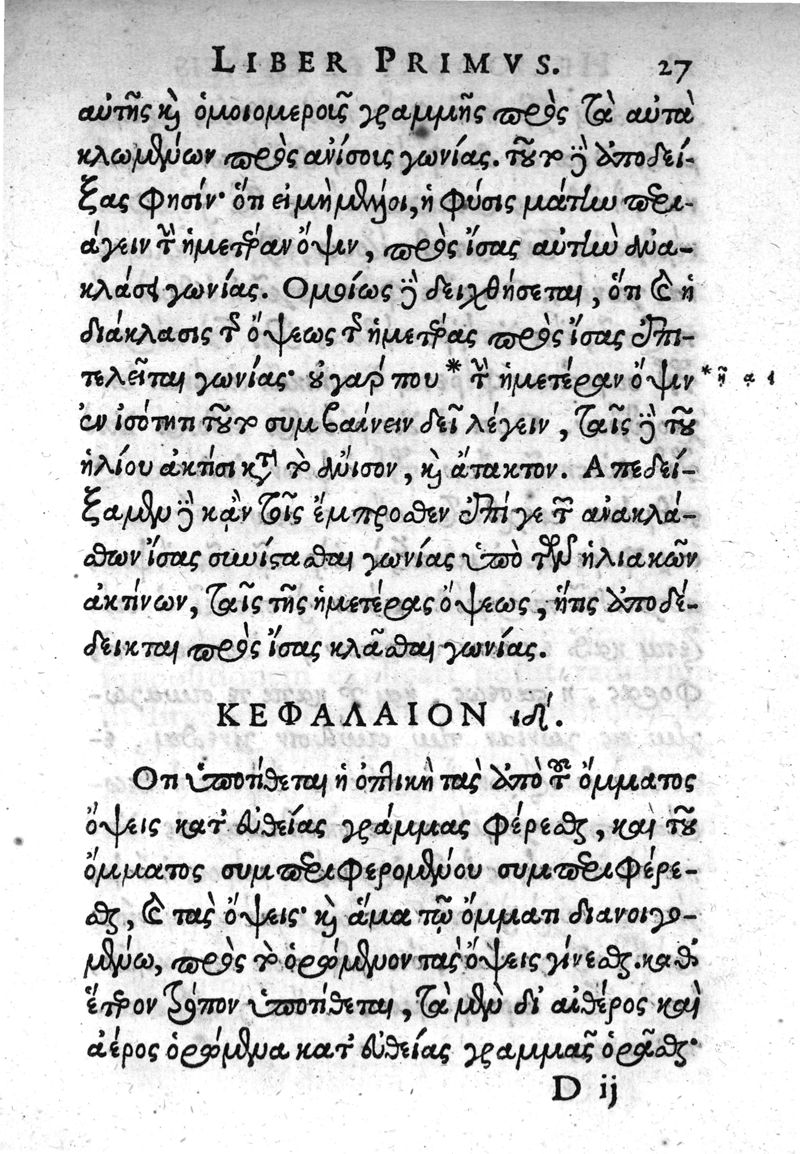 LIBER PRIMVS. 27
αὐτῆς καὶ ὁμοιομεροῖς γραμμῆς πρὸς τὰ αὐτὰ
κλωμένων πρὸς ανίσοις γωνίας. τοῦτο γὸ ἀποδεί-
ξας φησίν· ὅτι εἰ μὴ μέλλοι, ἡ φύσις μάτην περι-
άγειν τὴν ἡμετέραν ὄψιν, πρὸς ἴσας αὐτὴν ἀνα-
κλάσει γωνίας. Ομοίως γὸ δειχθήσεται, ὅτι καὶ ἡ
διάκλασις τῆς ὄψεως τῆς ἡμετέρας πρὸς ἴσας ἐπι-
τελεῖται γωνίας· οὐ γαρ που * τὴν ἡμετέραν ὄψιν * ἢ α 1
ἐν ἰσότητι τοῦτο συμβαίνειν δεῖ λέγειν, ταῖς γὸ τοῦ
ἡλίου ἀκτῖσι κατὰ τὸ ἄνισον, καὶ ἄτακτον. Απεδεί-
ξαμεν γὸ κἀν τοῖς ἔμπροσθεν ἐπί γε τῶν ανακλά-
σεων ἴσας συνίστασθαι γωνίας ὑπὸ τῶν ἡλιακῶν
ακτίνων, ταῖς τῆς ἡμετέρας ὄψεως, ἥτις ἀποδέ-
δεικται πρὸς ἴσας κλᾶσθαι γωνίας.
ΚΕΦΑΛΑΙΟΝ ιδ΄.
Οτι ὑποτίθεται ἡ ὀπτικὴ τὰς ἀπὸ τοῦ ὄμματος
ὄψεις κατ' εὐθείας γράμμας φέρεσθαι, καὶ τοῦ
ὄμματος συμπεριφερομένου συμπεριφέρε-
σθαι, καὶ τὰς ὄψεις· καὶ ἅμα τῷ ὄμματι διανοιγο-
μένῳ, πρὸς τὸ ὁρώμενον τὰς ὄψεις γίνεσθαι. καθ'
ἕτερον τρόπον ὑποτίθεται, τὰ μὲν δι' αἰθέρος καὶ
ἀέρος ὁρώμενα κατ' εὐθείας γραμμὰς ὁρᾶσθαι·
D ij